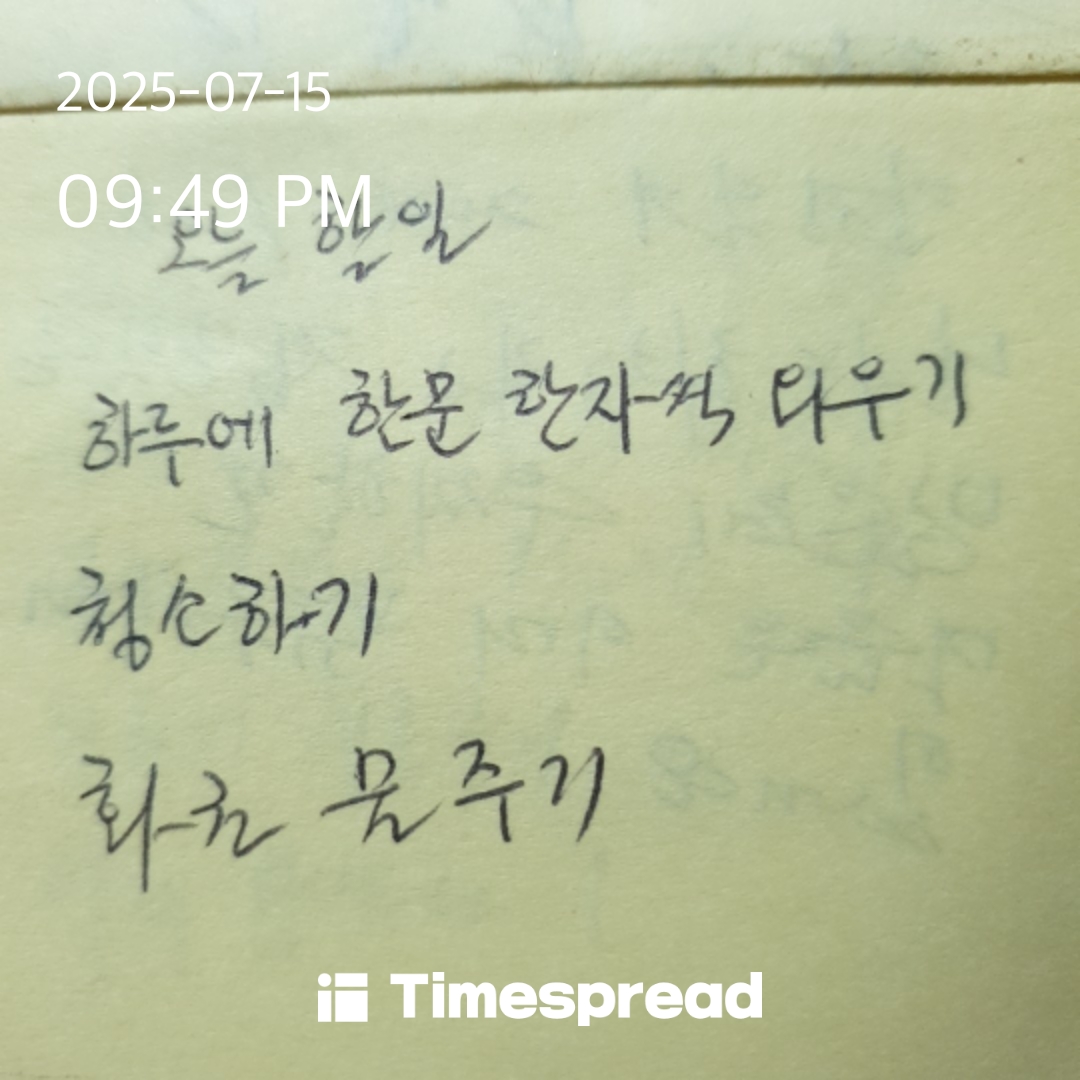 2025-07-15
09:49 PM
오늘 할일
하루에 한문 한자씩 외우기
청소하기
화초 물주기
Timespread